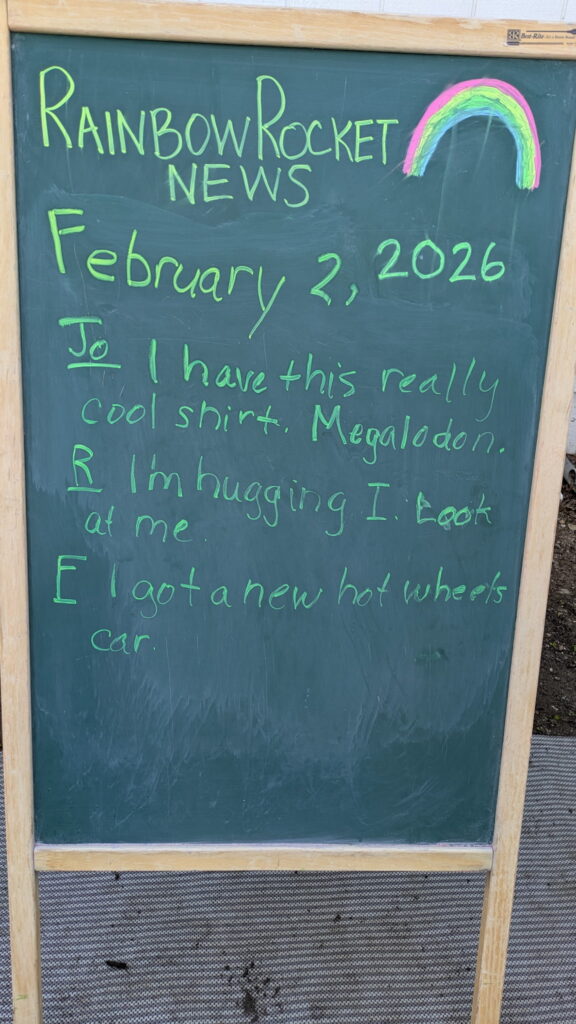 RAINBOW ROCKET
NEWS
February 2, 2026
Jo I have this really
cool shirt. Megalodon.
R I'm hugging I. Look
at me.
E I got a new hot wheels
car.
Best-Rite